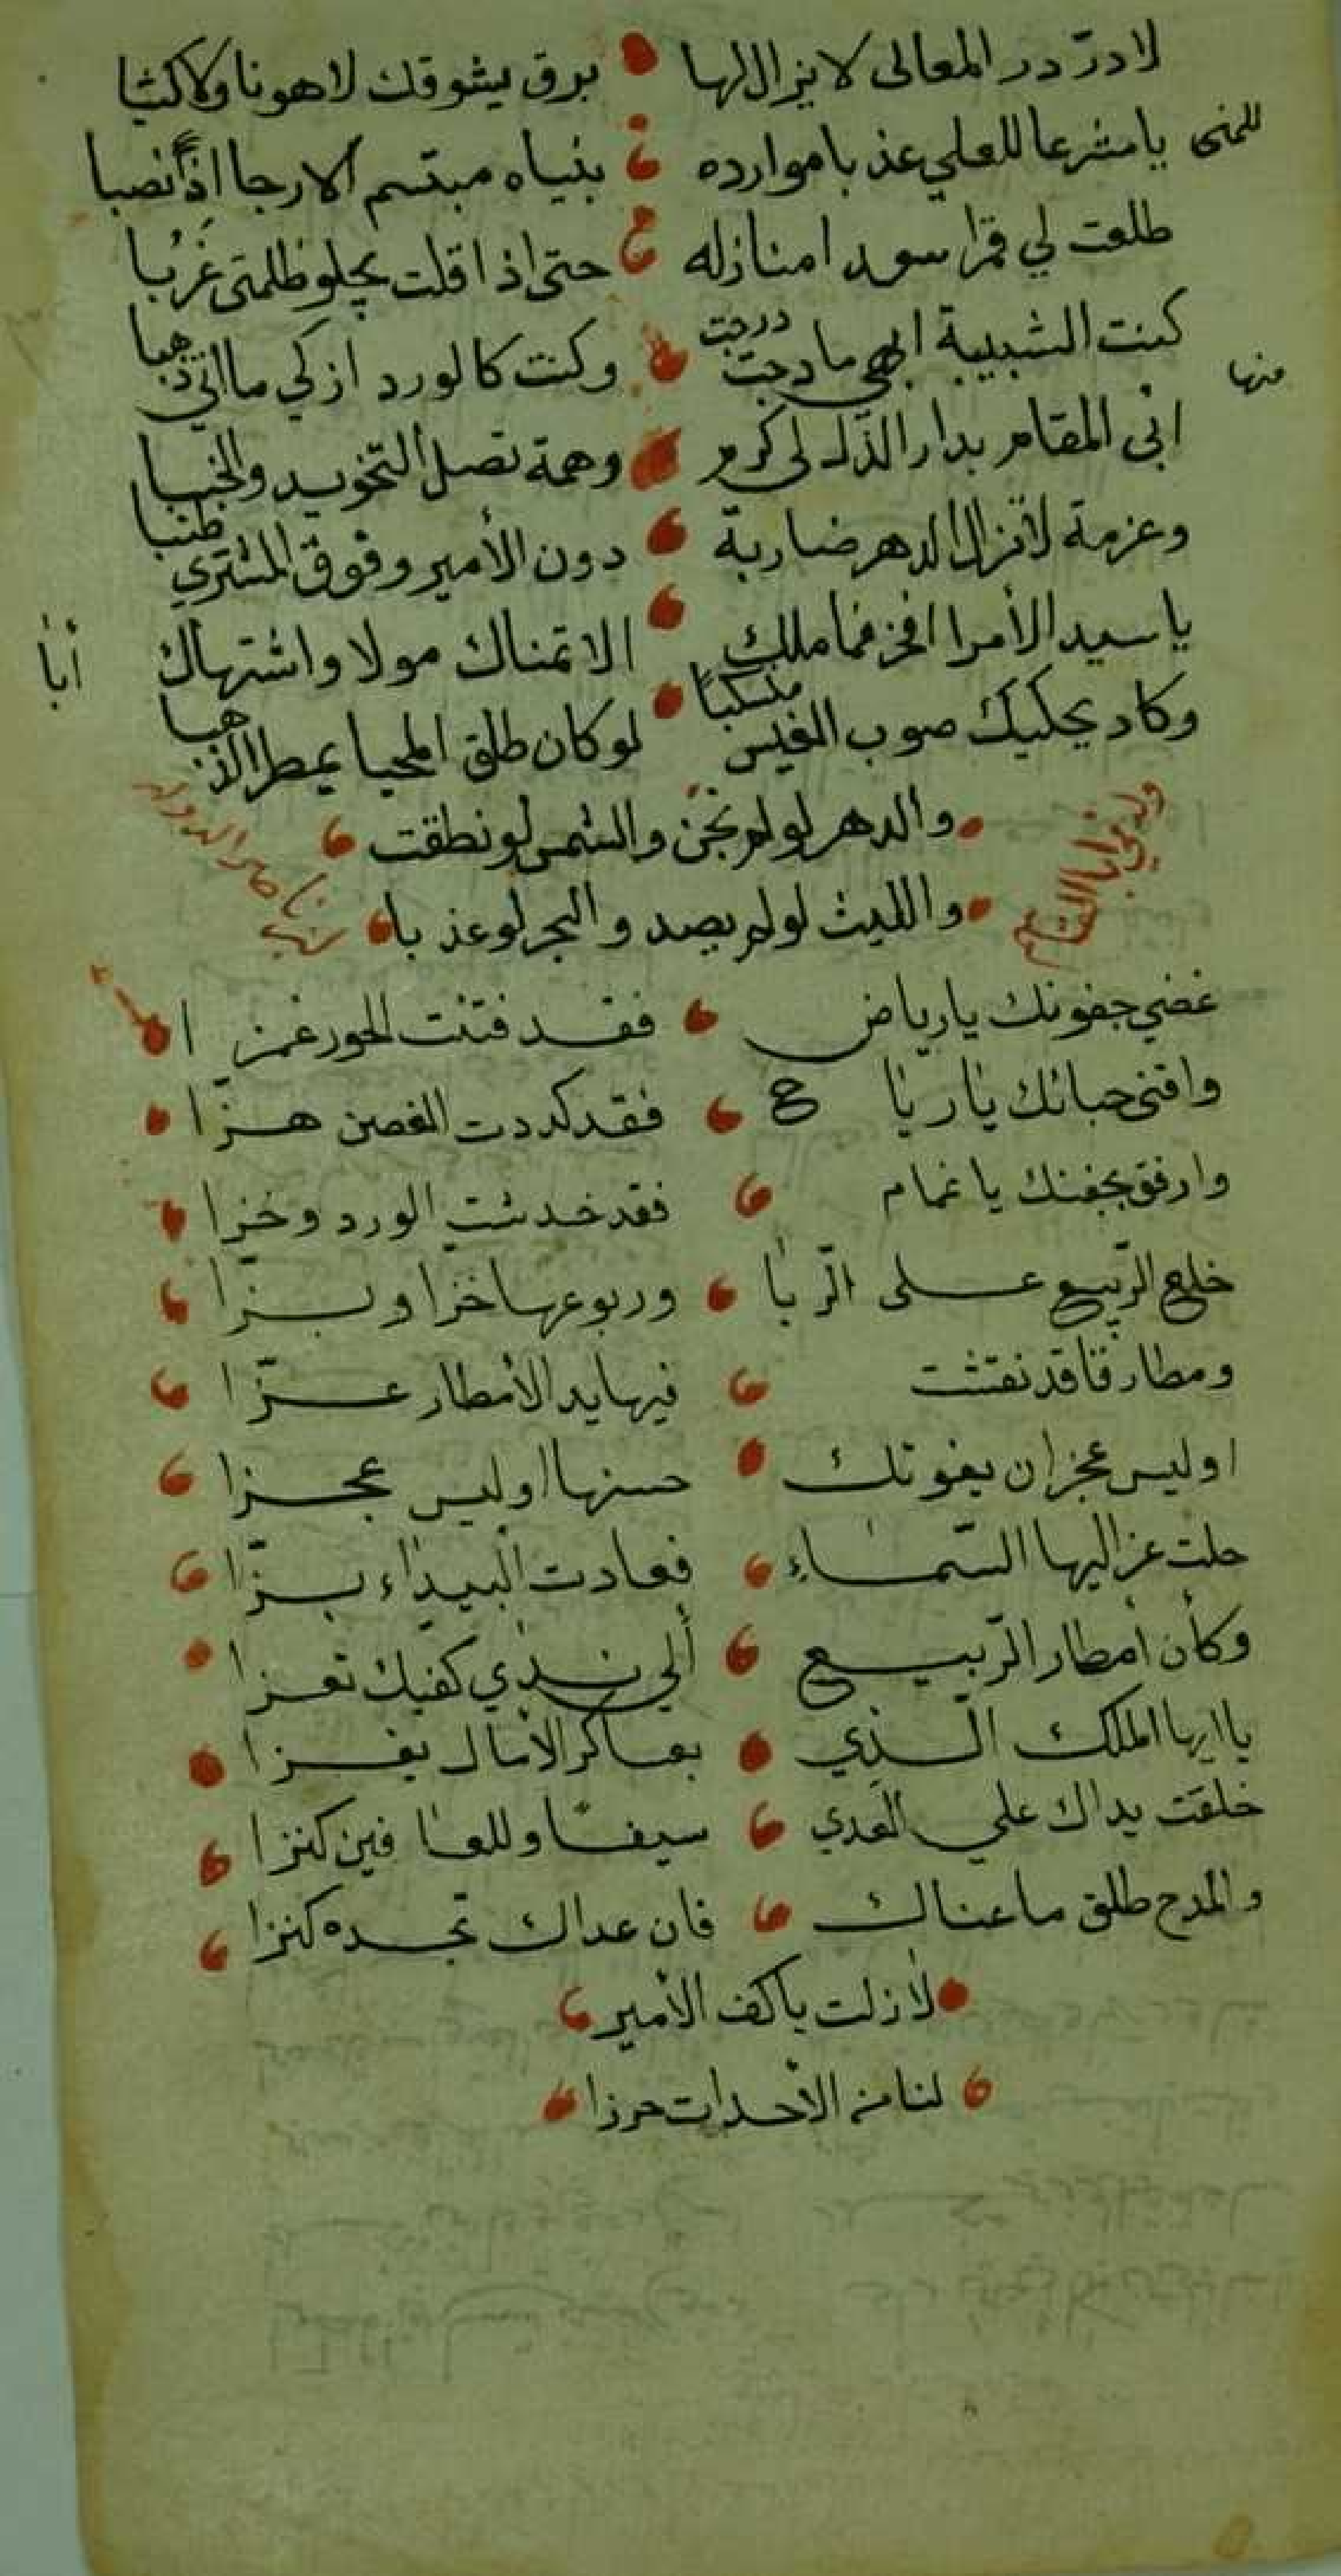 لا درّ در المعالى لا يزال لها برق يشوقك لا هونا ولا كثبا
للمنى يا مشرعا للعلي عذبا موارده بنياه مبتسم الارجا اذا نصبا
طلعت لي قمرا سعدا منازله حتى اذا قلت يجلو ظلمتى غربا
كنت الشبيبة ابهي ما دجت درجت وكنت كالورد ازكي ما اتي ذهبا
منها
ابى المقام بدار الذل لى كرم وهمة تصل التخويد والخببا
وعزمة لا تزال الدهر ضاربة دون الأمير وفوق المشتري طنبا
يا سيد الأمرا افخر فما ملك الا تمناك مولا واشتهاك أبا
وكاد يحكيك صوب الغيس منسكبا لو كان طلق المحيا يمطر الذهبا
والدهر لو لم يخن والشمس لو نطقت
والليث لو لم يصد والبحر لو عذبا
غضي جفونك يا رياض فقد فتنت الحور غمزا
واقنى حيائك يا رياح فقد كددت الغصن هزّا
وارفق بجفنك يا غمام فقد خدشت الورد وخزا
خلع الرّبيع على الرّبا وربوعها خزا وبزّا
ومطارفا قد نقشت فيها يد الأمطار عزّا
اوليس عجزا ان يفوتك حسنها اوليس عجزا
حلت عزاليها السّماء فعادت البيداء بزّا
وكأن أمطار الرّبيع ألي ندي كفيك تعزا
يا ايها الملك الّذي بعساكر الأمال يغزا
خلقت يداك علي العدي سيفا وللعافين كنزا
والمدح طلق ما عناك فان عداك تجده كنزا
لا زلت يا كف الأمير
لنا من الأحداث حرزا